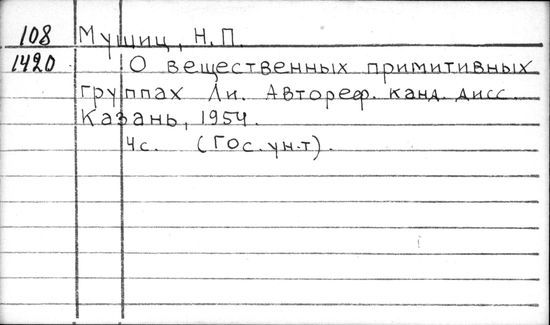 108 Мушиц, Н.П.
1420 О вещественных примитивных
группах Ли. Автореф. канд. дисс.
Казань, 1954.
4с. (Гос. ун-т).